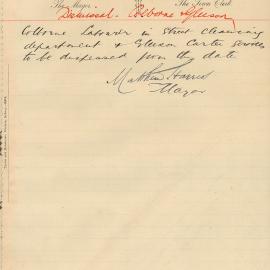 The Mayor The Town Clerk
Dismissal. Colborne & Gleeson
Colborne Labourer in Street cleansing
department & Gleeson Carter services
to be dispensed from this date
Matthew Harris
Mayor